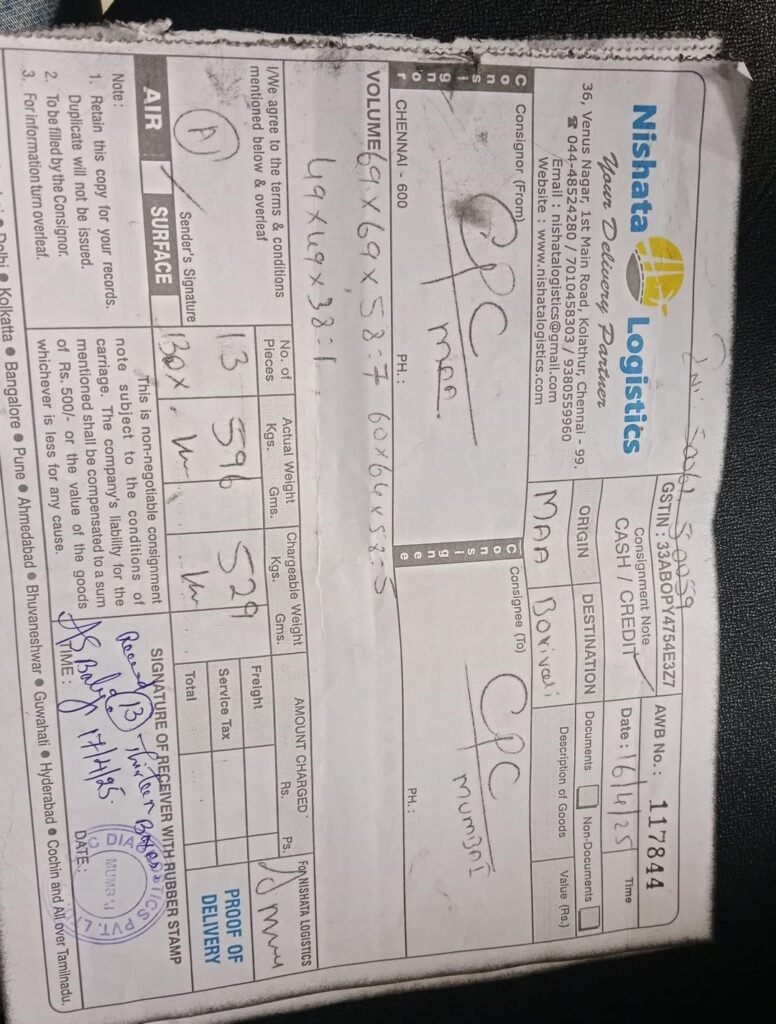 INV. 50061, 50059
Nishata Logistics
Your Delivery Partner
36, Venus Nagar, 1st Main Road, Kolathur, Chennai - 99.
☎ 044-48524280 / 7010458303 / 9380559960
Email : nishatalogistics@gmail.com
Website : www.nishatalogistics.com
GSTIN : 33ABOPY4754E3Z7
Consignment Note
CASH / CREDIT ✓
AWB No. : 117844
Date : 16/4/25
Time
ORIGIN
MAA
DESTINATION
Borivali
Documents
Non-Documents
Description of Goods
Value (Rs.)
Consignor
Consignor (From)
CPC
MAA
CHENNAI - 600
PH. :
Consignee
Consignee (To)
CPC
MUMBAI
PH. :
VOLUME 69 x 69 x 58 : 7 60 x 64 x 58 : 5
49 x 49 x 38 : 1
I/We agree to the terms & conditions
mentioned below & overleaf
A
Sender's Signature
AIR
SURFACE
No. of Pieces
13
Box
Actual Weight
Kgs. Gms.
596
Chargeable Weight
Kgs. Gms.
529
AMOUNT CHARGED
Rs. Ps.
Freight
Service Tax
Total
For NISHATA LOGISTICS
PROOF OF
DELIVERY
Note :
1. Retain this copy for your records.
Duplicate will not be issued.
2. To be filled by the Consignor.
3. For information turn overleaf.
This is non-negotiable consignment
note subject to the conditions of
carriage. The company's liability for the
mentioned shall be compensated to a sum
of Rs. 500/- or the value of the goods
whichever is less for any cause.
SIGNATURE OF RECEIVER WITH RUBBER STAMP
Received 13 - thirteen Boxes
17/4/25.
TIME :
DATE :
MUMBAI
PVT. L
Delhi ● Kolkatta ● Bangalore ● Pune ● Ahmedabad ● Bhuvaneshwar ● Guwahati ● Hyderabad ● Cochin and All over Tamilnadu.